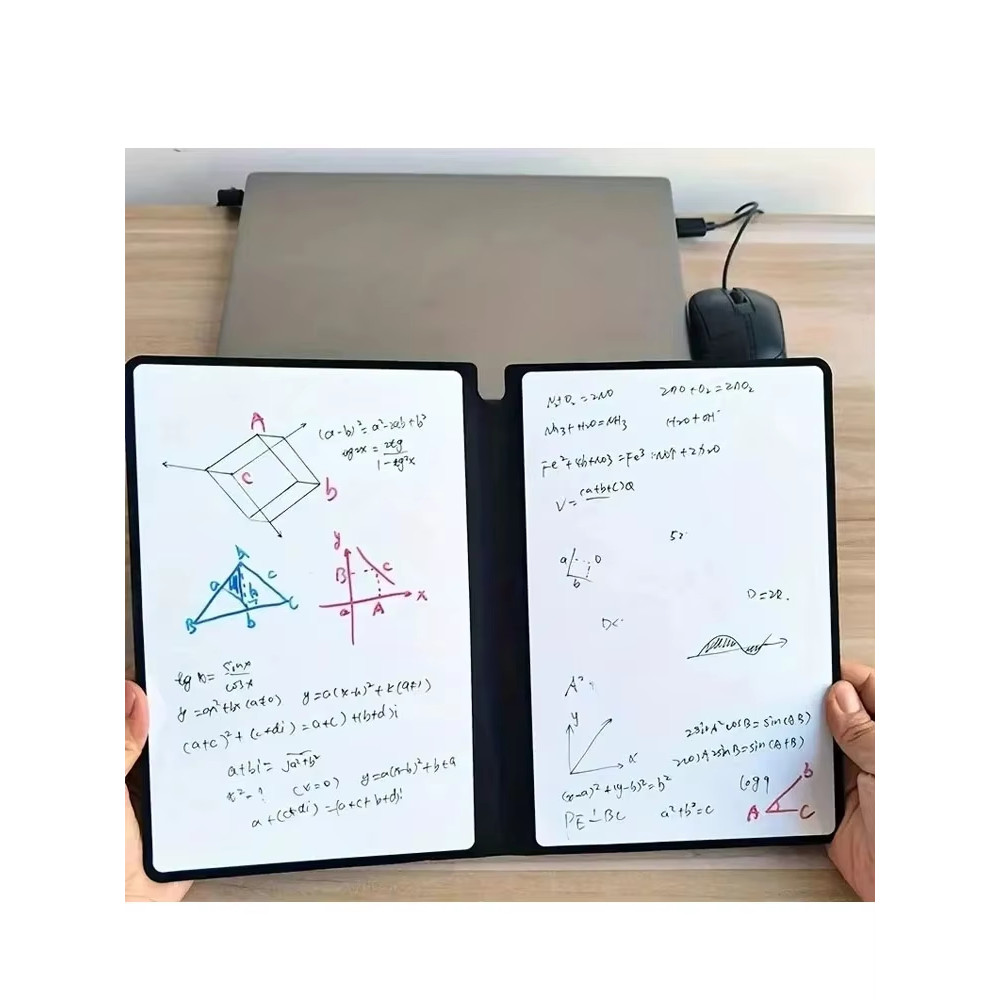 A
(a-b)²= a²-2ab+b²
tg2x = 2tg
1-tg²x
C
b
y
B C
a A x
A
a c
B b C
tg x = sinx
cosx
y =ax²+bx (a≠0) y=a(x-h)²+k(a≠1)
(a+c)²+(c+di)=a+c)+(b+d)i
a+bi= √a²+b²
x²=? (x=0) y=a(x-b)²+b+a
a+(c+di)=(a+c+b+d)i
N₂+O₂=2NO 2NO+O₂=2NO₂
NH₃+H₂O=NH₃ H₂O+OH
V=(a+b+c)Q
a D
b
D=2R.
A²
y
x
2sinA²cosB=sin(AB)
2cosA2sinB=sin(A+B)
(x-a)²+(y-b)²=b² log9
PE⊥BC a²+b²=c
b
A C